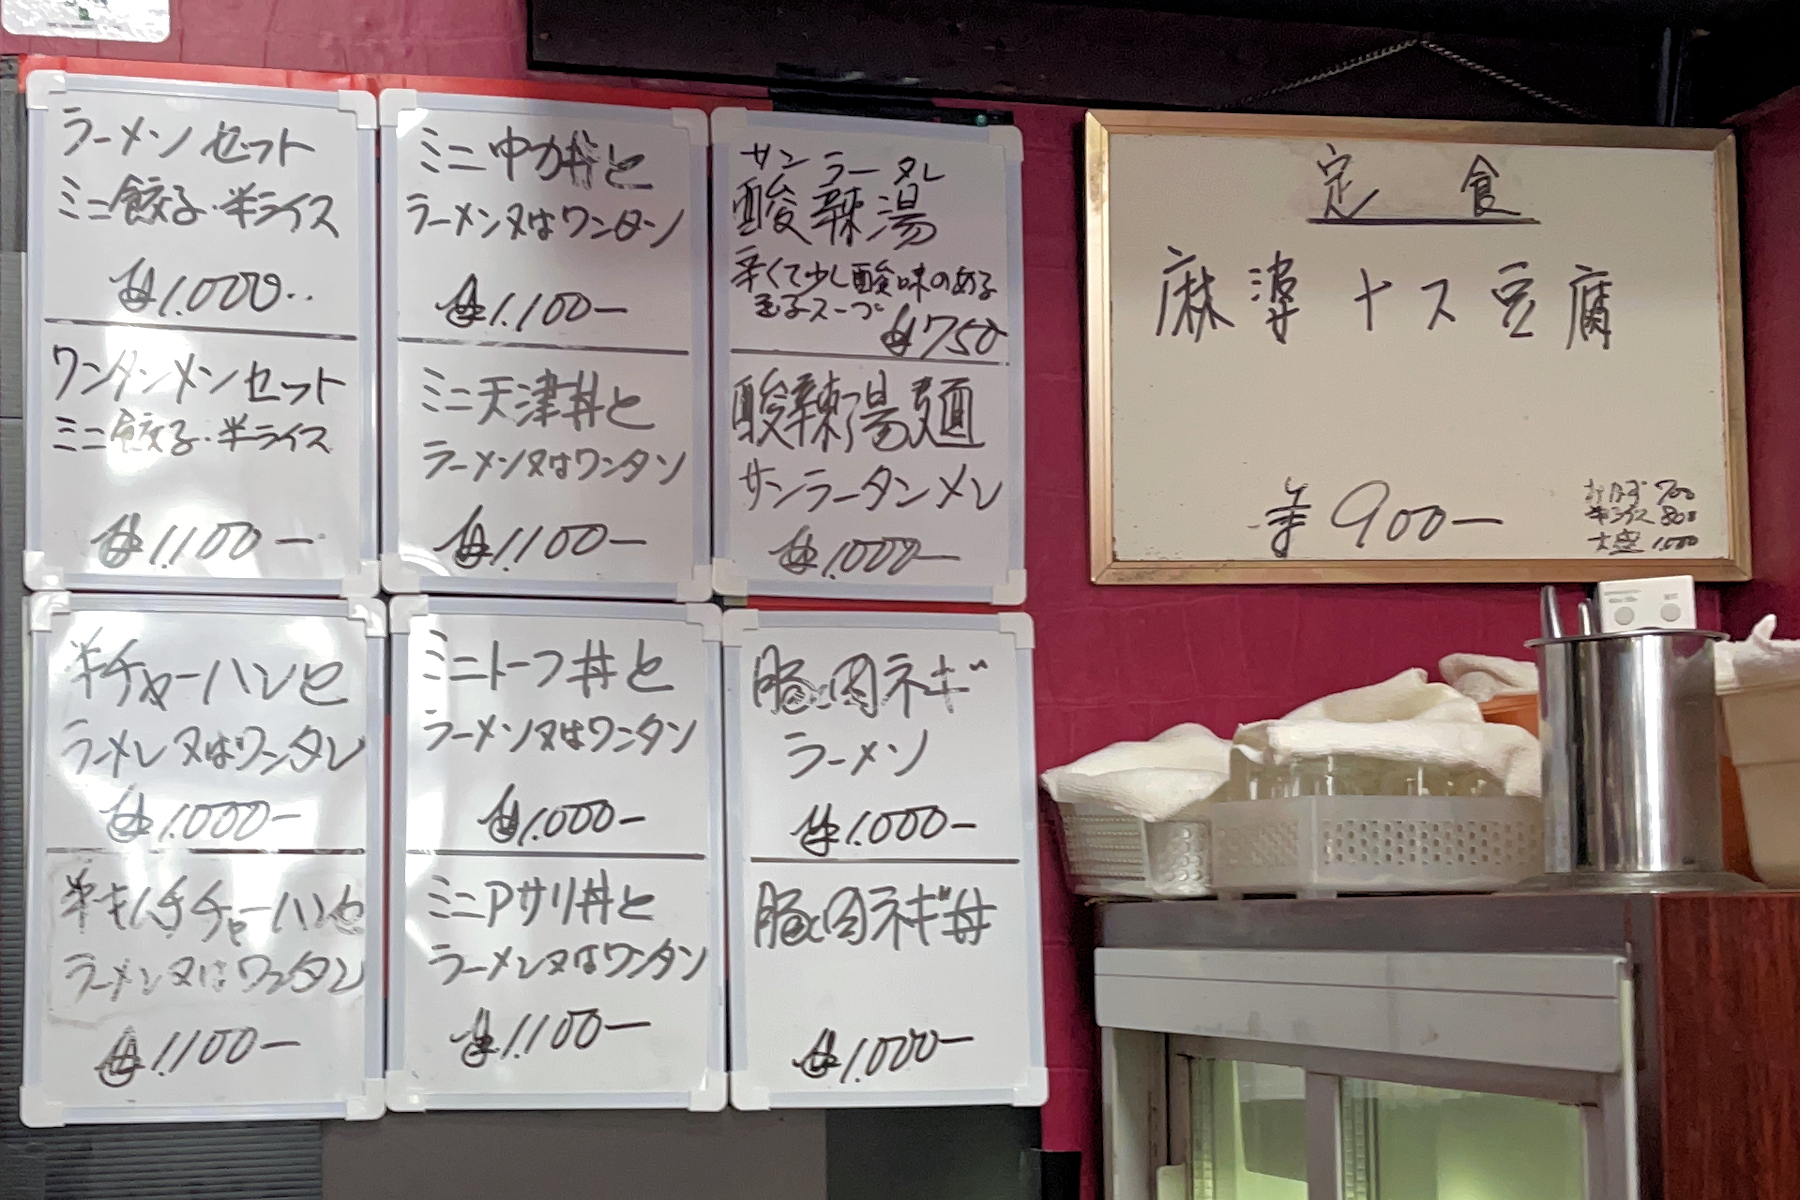 ラーメンセット
ミニ餃子・半ライス
¥1.000..
ワンタンメンセット
ミニ餃子・半ライス
¥1.100ー
ミニ中カ丼と
ラーメン又はワンタン
¥1.100ー
ミニ天津丼と
ラーメン又はワンタン
¥1.100ー
サンラータン
酸辣湯
辛くて少し酸味のある
玉子スープ
¥750
酸辣湯麺
サンラータンメン
¥1.000ー
半チャーハンと
ラーメン又はワンタン
¥1.000ー
半キムチチャーハンと
ラーメン又はワンタン
¥1.100ー
ミニトーフ丼と
ラーメン又はワンタン
¥1.000ー
ミニアサリ丼と
ラーメン又はワンタン
¥1.100ー
豚肉ネギ
ラーメン
¥1.000ー
豚肉ネギ丼
¥1.000ー
定食
麻婆ナス豆腐
¥900ー
おかず 700
半ライス 800
大盛 1.000